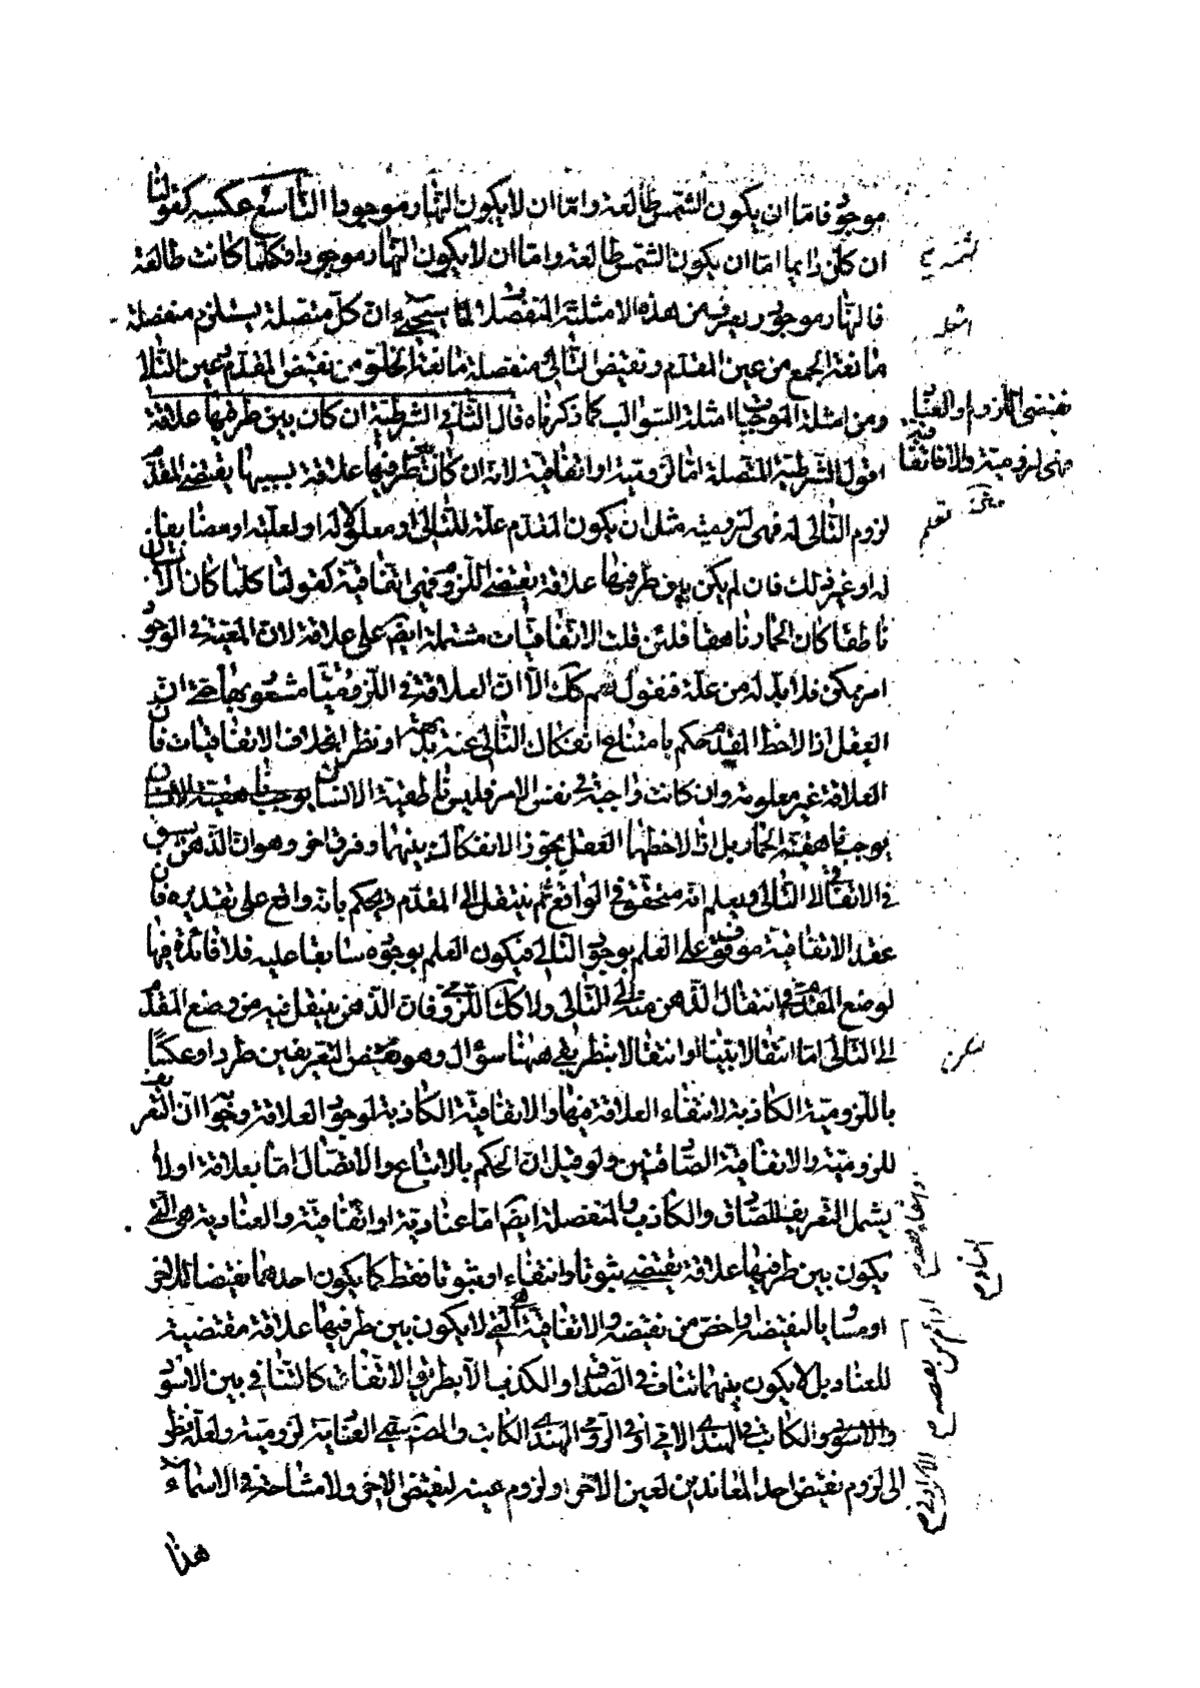 موجود فاما ان يكون الشمس طالعة واما ان لا يكون النهار موجودا التاسع عكسه كقولنا
ان كان دايما اما ان يكون الشمس طالعة واما ان لا يكون النهار موجودا فكلما كانت طالعة
فالنهار موجود ويعرف من هذه الامثلة المنفصلة لما سيجيء ان كل متصلة يستلزم منفصلة
مانعة الجمع من عين المقدم ونقيض التالي منفصلة مانعة الخلو من نقيض المقدم عين التالي
ومن امثلة الموجبات امثلة السوالب كما ذكرناه قال الثاني الشرطية ان كان بين طرفيها علاقة
يقتضي اللزوم او العناد
فهي لزومية والا فاتفاقية
اقول الشرطية المتصلة اما لزومية او اتفاقية لانه ان كان بين طرفيها علاقة بسببها يقتضي المقدم
لزوم التالي له فهي لزومية مثل ان يكون المقدم علة للتالي او معلولا له او لعلته او مضايفا
له او غير ذلك فان لم يكن بين طرفيها علاقة يقتضي اللزوم فهي اتفاقية كقولنا كلما كان الانسان
ناطقا كان الحمار ناهقا فلئن قلت الاتفاقيات مشتملة ايضا على علاقة لان المعية في الوجود
امر ممكن فلا بد له من علة فنقول نعم كك الا ان العلاقة في اللزوميات مشعور بها حتى ان
العقل اذا لاحظ المقدم حكم بامتناع انفكاك التالي عنه بديهة او نظرا بخلاف الاتفاقيات فان
العلاقة غير معلومة وان كانت واجبة في نفس الامر فليس ناطقية الانسان يوجب ناهقية الانسان
يوجب ناهقية الحمار بل اذا لاحظهما العقل يجوز الانفكاك بينهما وفرق اخر وهو ان الذهن يسبق
في الاتفاقي الى التالي ويعلم انه متحقق في الواقع ثم ينتقل الى المقدم ويحكم بانه واقع على تقديره فان
عقد الاتفاقية موقوف على العلم بوجود التالي فيكون العلم بوجوده سابقا عليه فلا فائدة فيها
لوضع المقدم في انتقال الذهن منه الى التالي ولا كك اللزومي فان الذهن ينتقل فيه من وضع المقدم
الى التالي اما انتقالا بينا او انتقالا بنظر بقي ههنا سؤال وهو نقض التعريفين طردا وعكسا
باللزومية الكاذبة لانتفاء العلاقة فيها والاتفاقية الكاذبة لوجود العلاقة وجوابه ان التعريف
للزومية والاتفاقية الصادقتين ولو قيل ان الحكم بالاتباع والاتصال اما بعلاقة اولا
يشمل التعريف الصادق والكاذب والمنفصلة ايضا اما عنادية او اتفاقية والعنادية هي التي
يكون بين طرفيها علاقة يقتضي ثبوتا وانتفاء او ثبوتا فقط كما يكون احدهما نقيضا للاخر
او مساويا لنقيضه او اخص من نقيضه والاتفاقية هي التي لا يكون بين طرفيها علاقة مقتضية
للعناد بل لا يكون بينهما تناف في الصدق او الكذب الا بطريق الاتفاق كالتنافي بين الاسود
والاسود والكاتب في الهندي الامي او في الرومي الهندي الكاتب والمص سمى العنادية لزومية ولعله نظر
الى لزوم نقيض احد المعاندين لعين الاخر او لزوم عينه لنقيض الاخر ولا مشاحة في الاسماء
هذا